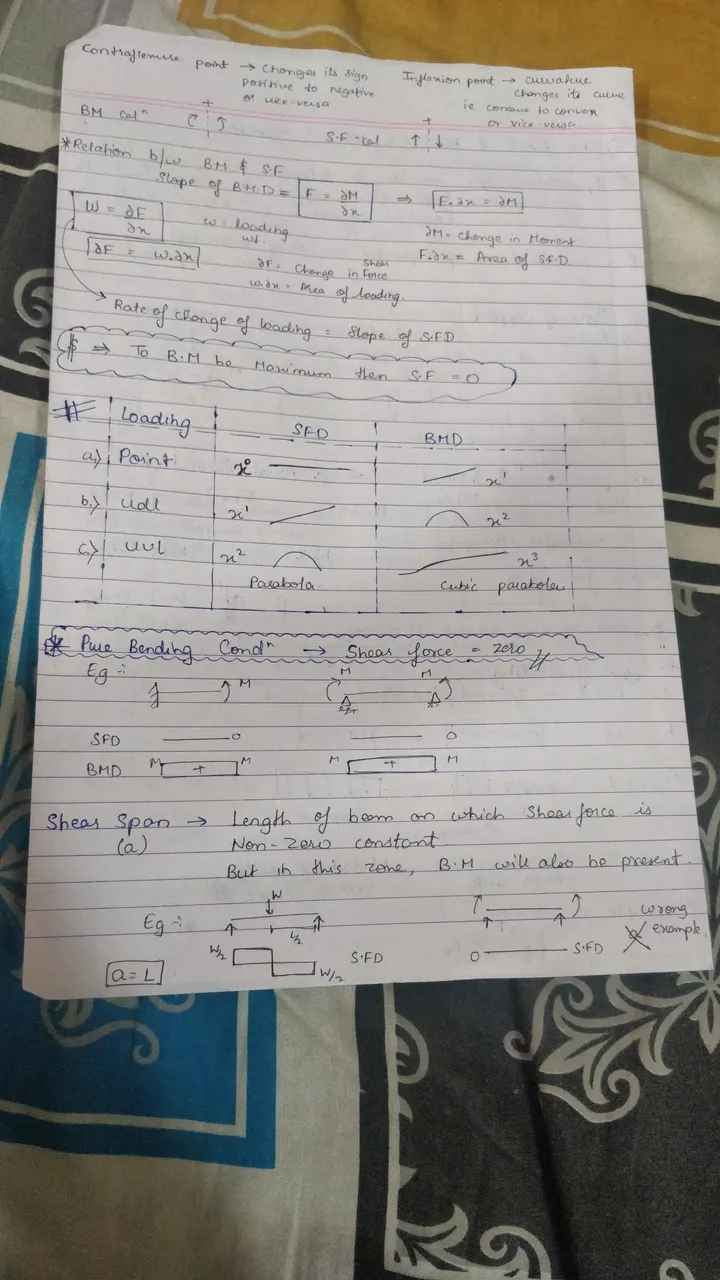 Contraflexure point → Changes its sign positive to negative or vice-versa
Inflexion point → curvature changes its curve ie concave to convex or vice-versa
BM calⁿ
+
S.F-cal ↑ ↓
+
*Relation b/w BM & SF
Slope of B.M.D = F = ∂M/∂x ⇒ F.∂x = ∂M
W = ∂F/∂x
w = loading wt.
∂M = change in Moment
∂F = w.∂x
∂F = Change in Shear Force
F.∂x = Area of S.F.D.
w.∂x = Area of loading.
Rate of change of loading = Slope of S.F.D
$ ⇒ To B.M be Maximum then S.F = 0
# Loading SFD BMD
a.) Point x⁰ x¹
b.) Udl x¹ x²
c.) UVL x² x³
Parabola. Cubic parabola
* Pure Bending Condⁿ → Shear force = zero
Eg :- M M M
SFD 0 0
BMD M + M M + M
Shear Span → Length of beam on which Shear force is
(a) Non-zero constant.
But in this zone, B.M will also be present.
W
Eg :- L/2 wrong example
W/2 S.FD 0 S.FD
a = L W/2